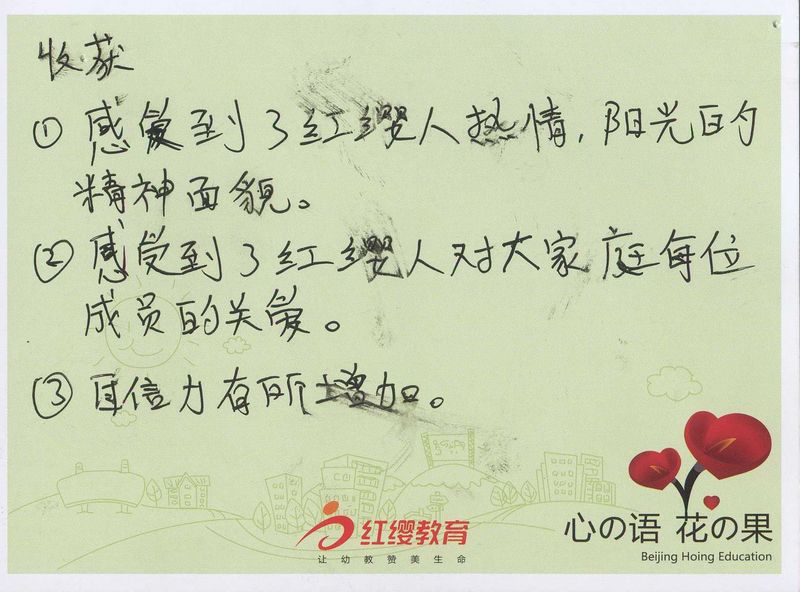 收获
① 感受到了红缨人热情,阳光的
精神面貌。
② 感受到了红缨人对大家庭每位
成员的关爱。
③ 自信力有所增加。
红缨教育
让幼教赞美生命
心の语 花の果
Beijing Hoing Education